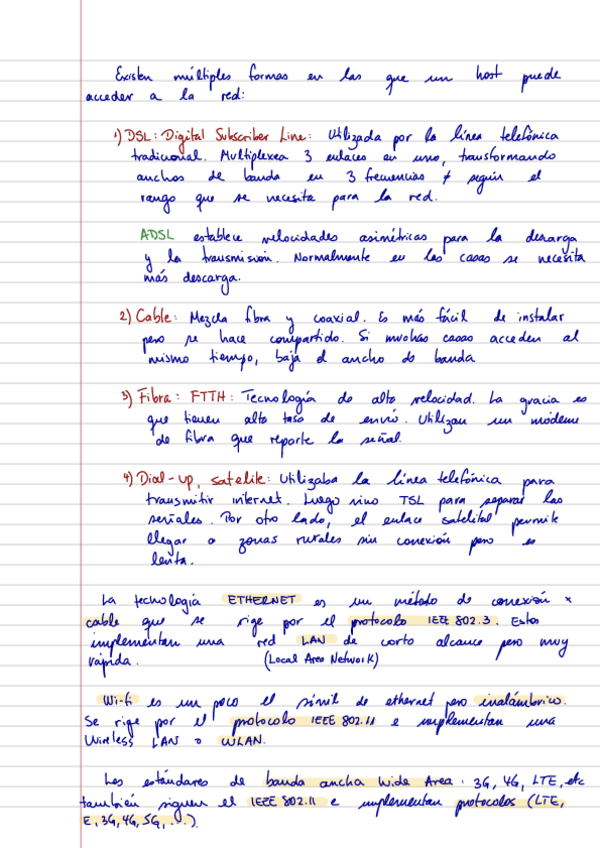 Existen múltiples formas en las que un host puede
acceder a la red:
1) DSL: Digital Subscriber Line: Utilizada por la línea telefónica
tradicional. Multiplexea 3 enlaces en uno, transformando
anchos de banda en 3 frecuencias ≠ según el
rango que se necesita para la red.
ADSL establece velocidades asimétricas para la descarga
y la transmisión. Normalmente en las casas se necesita
más descarga.
2) Cable: Mezcla fibra y coaxial. Es más fácil de instalar
pero se hace compartido. Si muchas casas acceden al
mismo tiempo, baja el ancho de banda
3) Fibra: FTTH: Tecnología de alta velocidad. La gracia es
que tienen alta tasa de envío. Utilizan un módem
de fibra que reporte la señal.
4) Dial-up, satelite: Utilizaba la línea telefónica para
transmitir internet. Luego vino TSL para separar las
señales. Por otro lado, el enlace satelital permite
llegar a zonas rurales sin conexión pero es
lenta.
La tecnología ETHERNET es un método de conexión x
cable que se rige por el protocolo IEEE 802.3. Estos
implementan una red LAN de corto alcance pero muy
rápida. (Local Area Network)
Wi-fi es un poco el símil de ethernet pero inalámbrico.
Se rige por el protocolo IEEE 802.11 e implementan una
Wireless LAN o WLAN.
Los estándares de banda ancha Wide Area: 3G, 4G, LTE, etc
también siguen el IEEE 802.11 e implementan protocolos (LTE,
E, 3G, 4G, 5G, ...)